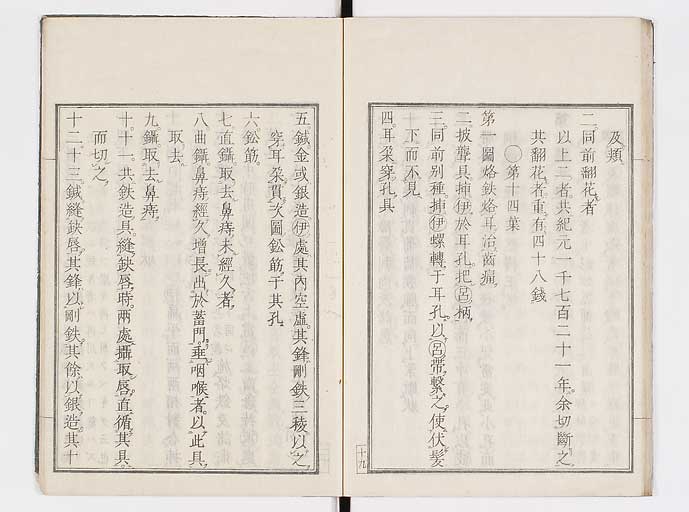 及頬
二同前翻花者
以上二者共紀元一千七百二十一年余切斷之
共翻花者重有四十八錢
○第十四葉
第一圖烙鉄烙耳治齒痛
二披聾具挿伊於耳孔把呂柄
三同前別種挿伊螺轉于耳孔以呂帶繫之使伏髪
下而不見
四耳朶穿孔具
十九
五鍼金或銀造伊處其內空虛其鋒剛鉄三稜以之
穿耳朶貫次圖鈆筋于其孔
六鈆筋
七直鑷取去鼻痔未經久者
八曲鑷鼻痔經久增長出於蓄門垂咽喉者以此具
取去
九鑷取去鼻痔
十十一共鉄造具縫鉠唇時兩處攝取唇直循其具
而切之
十二十三鍼縫鉠唇其鋒以剛鉄其餘以銀造其十